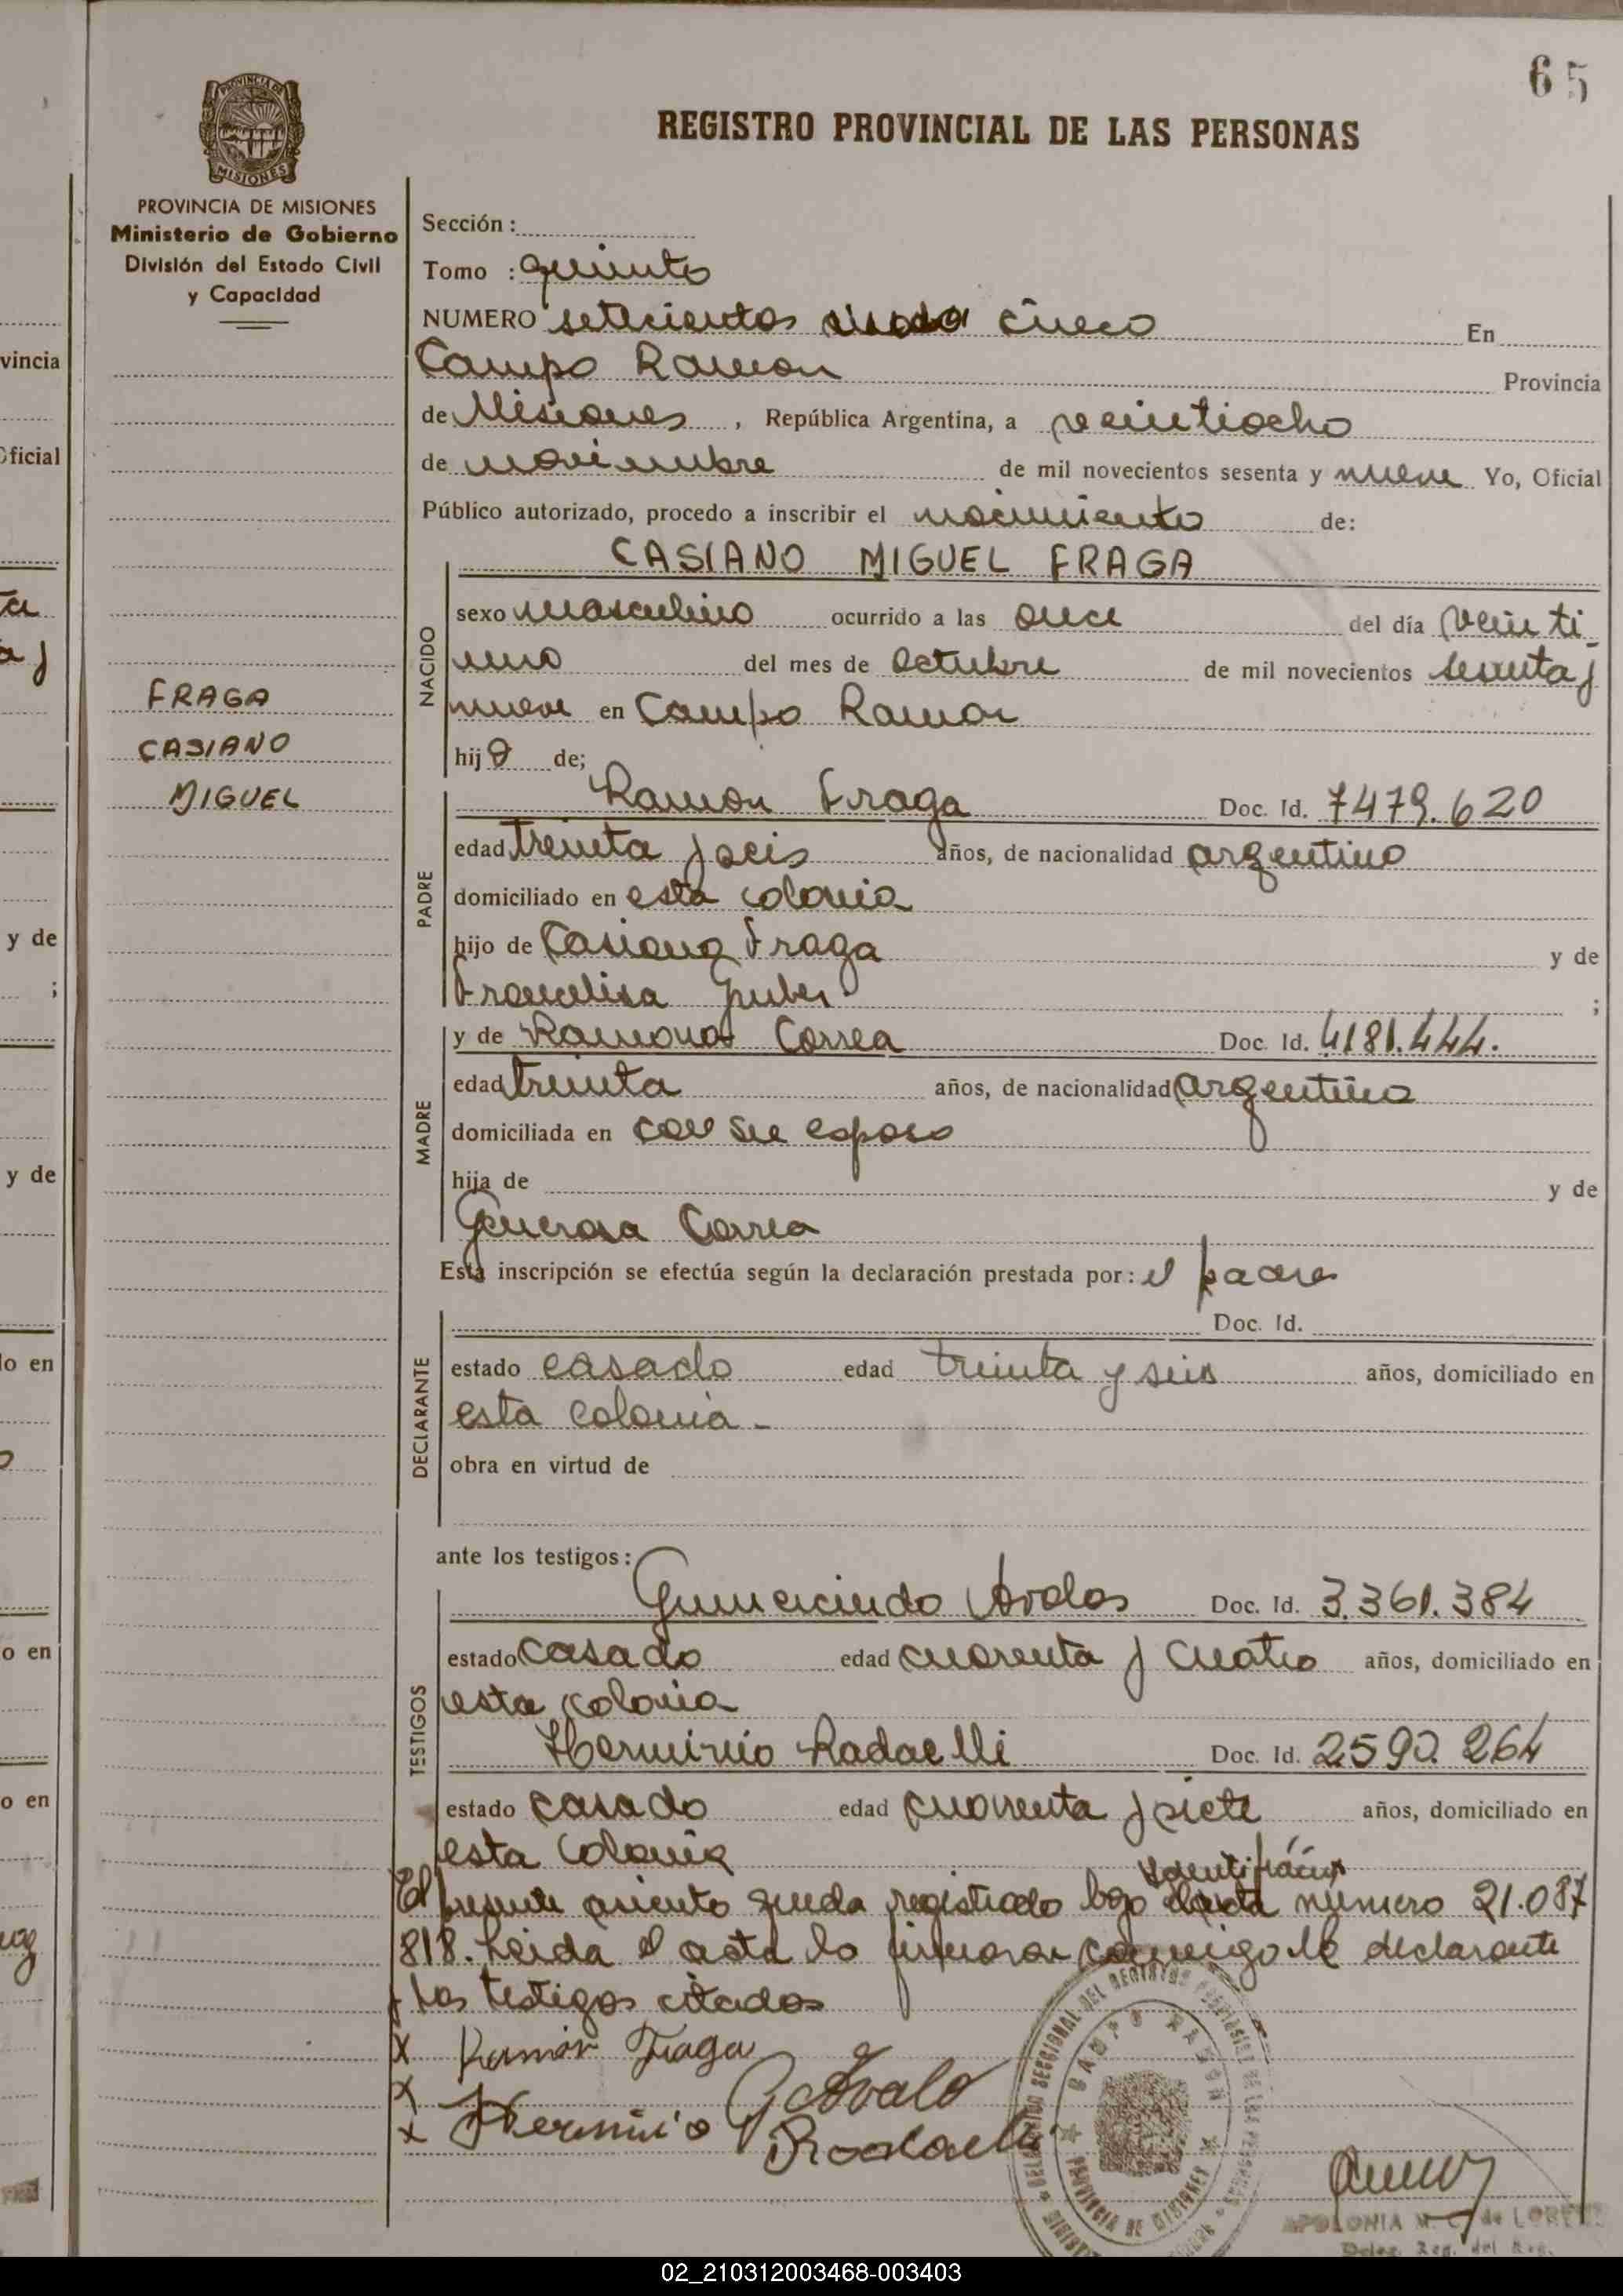 65
REGISTRO PROVINCIAL DE LAS PERSONAS
PROVINCIA DE MISIONES
Ministerio de Gobierno
División del Estado Civil
y Capacidad
Sección :
Tomo : quinto
NUMERO setecientos cinco En
Campo Ramon Provincia
de Misiones , República Argentina, a veintiocho
de noviembre de mil novecientos sesenta y nueve Yo, Oficial
Público autorizado, procedo a inscribir el nacimiento de:
CASIANO MIGUEL FRAGA
NACIDO
sexo masculino ocurrido a las once del día veinti
uno del mes de octubre de mil novecientos sesenta y
nueve en Campo Ramon
hijo de;
FRAGA
CASIANO
MIGUEL
PADRE
Ramon Fraga Doc. Id. 7479.620
edad treinta y seis años, de nacionalidad argentino
domiciliado en esta colonia
hijo de Fraga y de
;
MADRE
y de Ramona Correa Doc. Id. 4181.444.
edad treinta años, de nacionalidad argentina
domiciliada en con su esposo
hija de y de
Generosa Correa
Esta inscripción se efectúa según la declaración prestada por: el padre
DECLARANTE
Doc. Id.
estado casado edad treinta y seis años, domiciliado en
esta colonia -
obra en virtud de
ante los testigos:
TESTIGOS
Gumercindo Avalos Doc. Id. 3.361.384
estado casado edad cuarenta y cuatro años, domiciliado en
esta colonia
Herminio Radaelli Doc. Id. 2590.264
estado casado edad cuarenta y siete años, domiciliado en
esta colonia
El presente asiento queda registrado bajo identificación número 21.087
818. Leida el acta lo firmaron conmigo le declarante
y los testigos citados
x Ramón Fraga
x G Avalo
x Herminio Radaelli
CAMPO RAMON
PROVINCIA DE MISIONES
APOLONIA M. C. de
Deleg. Reg. del Reg.
02_210312003468-003403